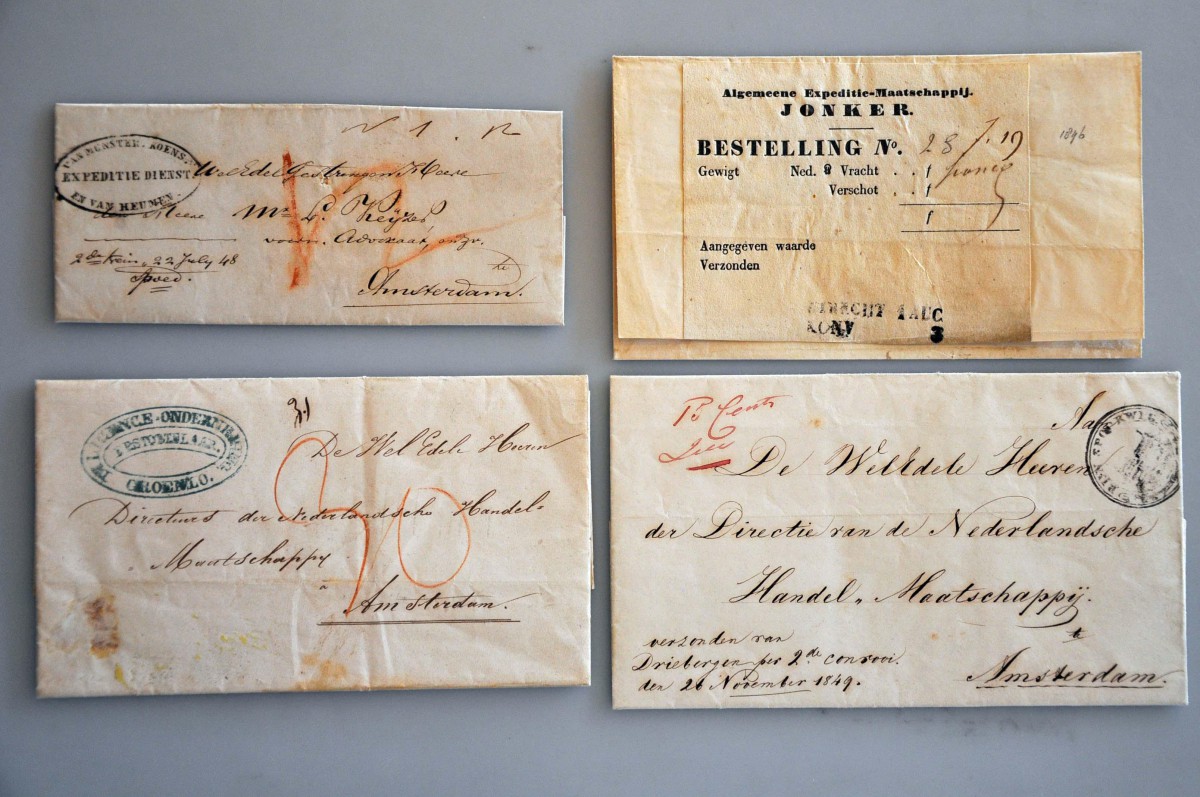 VAN MUNSTER. KOENS.
EXPEDITIE DIENST
EN VAN HEUMEN.
WelEdel Gestrengen Heere
den Heere
Mr. L. Keÿzer
voorn. Advokaat, enz.
te
Amsterdam.
2de trein, 22 July 48
Spoed.
Algemeene Expeditie-Maatschappij.
JONKER.
BESTELLING No. 28
Gewigt Ned. ℔ Vracht . . f
Verschot . f
f
franco
Aangegeven waarde
Verzonden
UTRECHT 1 AUG
KONV 3
1846
DILIGENCE-ONDERNEMING
GROENLO.
De Wel Edele Heeren
Directeurs der Nederlandsche Handel-
Maatschappy
a
Amsterdam.
30
15 Cents
Aan
De WelEdele Heeren
der Directie van de Nederlandsche
Handel „ Maatschappij.
te
Amsterdam.
verzonden van
Driebergen per 2de convooi.
den 26 November 1849.